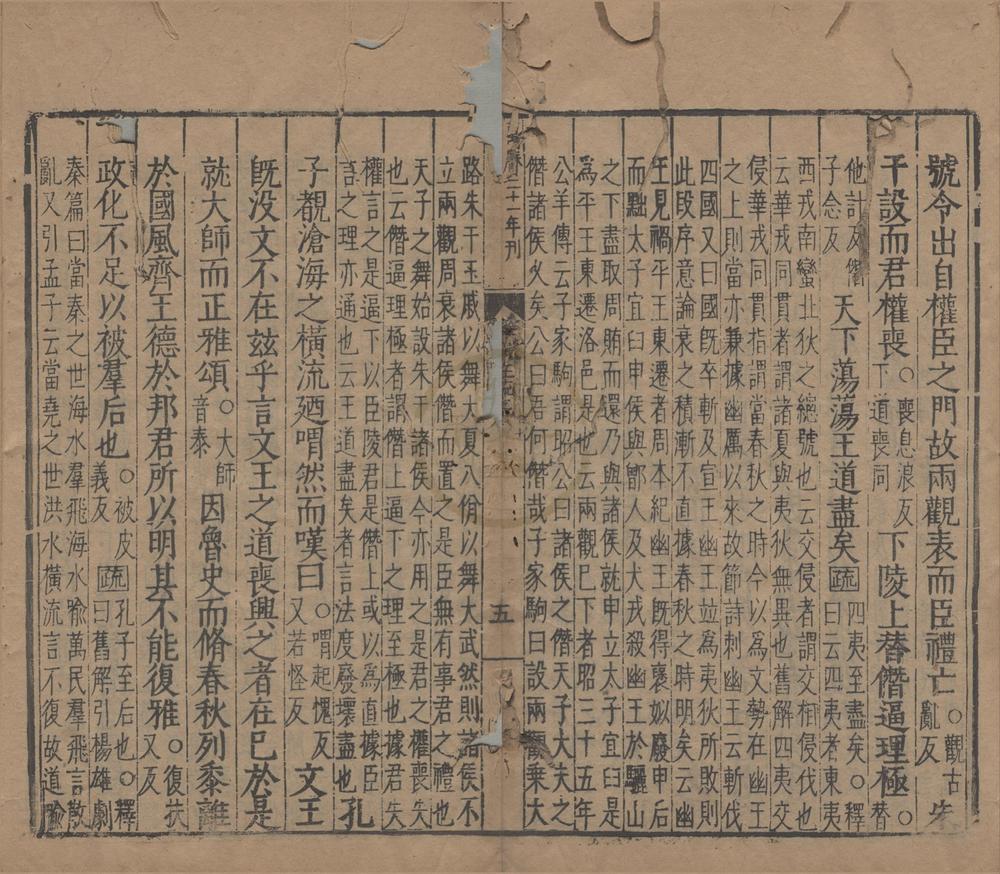 號令出自權臣之門故兩觀表而臣禮亡○觀古亂反朱
干設而君權喪○喪息浪反下道喪同下陵上替僭逼理極○替
他計反僭子念反天下蕩蕩王道盡矣疏四夷至盡矣○釋曰云四夷者東夷
西戎南蠻北狄之總號也云交侵者謂交相侵伐也
云華戎同貫者謂諸夏與夷狄無異也舊解四夷交
侵華戎同貫指謂當春秋之時今以為文勢在幽王
之上則當亦兼據幽厲以來故節詩刺幽王云斬伐
四國又曰國既卒斬及宣王幽王並為夷狄所敗則
此段序意論衰之積漸不直據春秋之時明矣云幽
王見禍平王東遷者周本紀幽王既得褒姒廢申后
而黜太子宜臼申侯與鄫人及犬戎殺幽王於驪山
之下盡取周賂而還乃與諸侯就申立太子宜臼是
為平王東遷洛邑是也云兩觀已下者昭三十五年
公羊傳云子家駒謂昭公曰諸侯之僭天子大夫之
僭諸侯久矣公曰吾何僭哉子家駒曰設兩觀乘大
二十一年刊
五
路朱干玉戚以舞大夏八佾以舞大武然則諸侯不
立兩觀周衰諸侯僭而置之是臣無有事君之禮也
天子之舞始設朱干諸侯今亦用之是君之權喪失
也云僭逼理極者謂僭上逼下之理至極也據君失
權言之是逼下以臣陵君是僭上或以為直據臣
言之理亦通也云王道盡矣者言法度廢壞盡也孔
子覩滄海之橫流廼喟然而嘆曰○喟起愧反又若怪反文王
既没文不在茲乎言文王之道喪興之者在己於是
就大師而正雅頌○大師音泰因魯史而脩春秋列黍離
於國風齊王德於邦君所以明其不能復雅○復扶又反
政化不足以被羣后也○被皮義反疏孔子至后也○釋曰舊解引楊雄劇
秦篇曰當秦之世海水羣飛海水喻萬民羣飛言散
亂又引孟子云當堯之世洪水橫流言不復故道喻